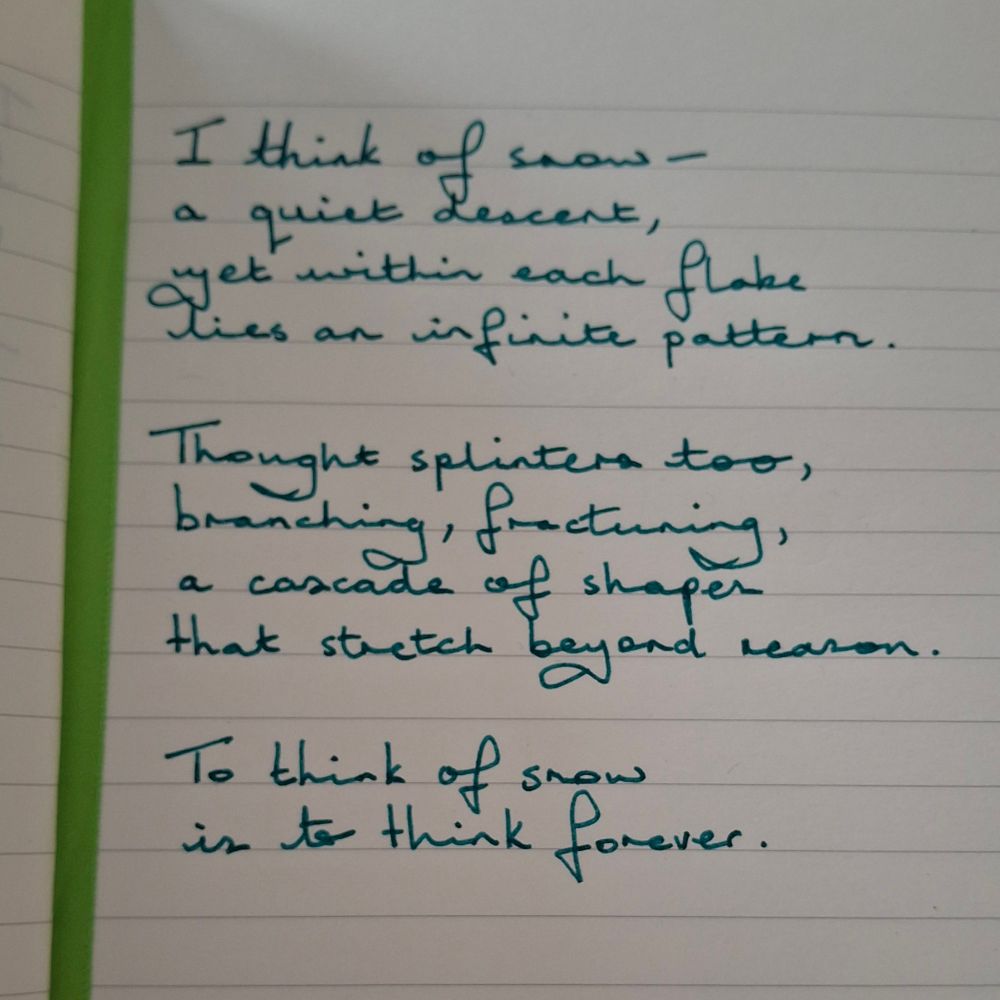 I think of snow –
a quiet descent,
yet within each flake
lies an infinite pattern.
Thought splinters too,
branching, fracturing,
a cascade of shapes
that stretch beyond reason.
To think of snow
is to think forever.